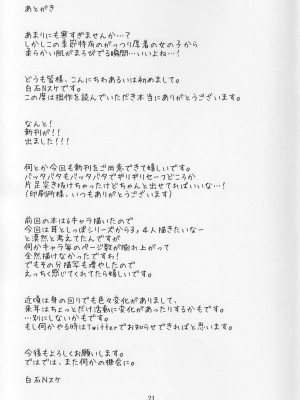 あとがき
あまりにも寒すぎませんか…?
しかしこの季節特有のがっつり厚着の女の子から
柔らかい肌がまろびでる瞬間…いいよね…!
どうも皆様、こんにちわあるいは初めまして。
白石Nスケです。
この度は拙作を読んでいただき本当にありがとうございます。
なんと!
新刊が!!
出ました!!!
何とか今回も新刊をご用意できて嬉しいです。
バッタバタもバッタバタでギリギリセーフどころか
片足突き抜けちゃったけどちゃんと出せてればいいな…!
(印刷所様、いつもありがとうございます)
前回の本は6キャラ描いたので
今回は耳としっぽシリーズから3,4人描きたいなー
と漠然と考えてたんですが
何かキャラ毎のページ数が膨れ上がって
全然描けなかったですね!
でもその分描写も増やしたので
えっちく感じてくれてたら嬉しいです。
近頃は身の回りでも色々変化がありまして、
来年はちょっとだけ活動に変化があったりするかもです。
…別にしないかもです。
もし何かやる時はTwitterでお知らせできればと思います。
今後もよろしくお願いします。
ではでは、また何かの機会に。
白石Nスケ
21